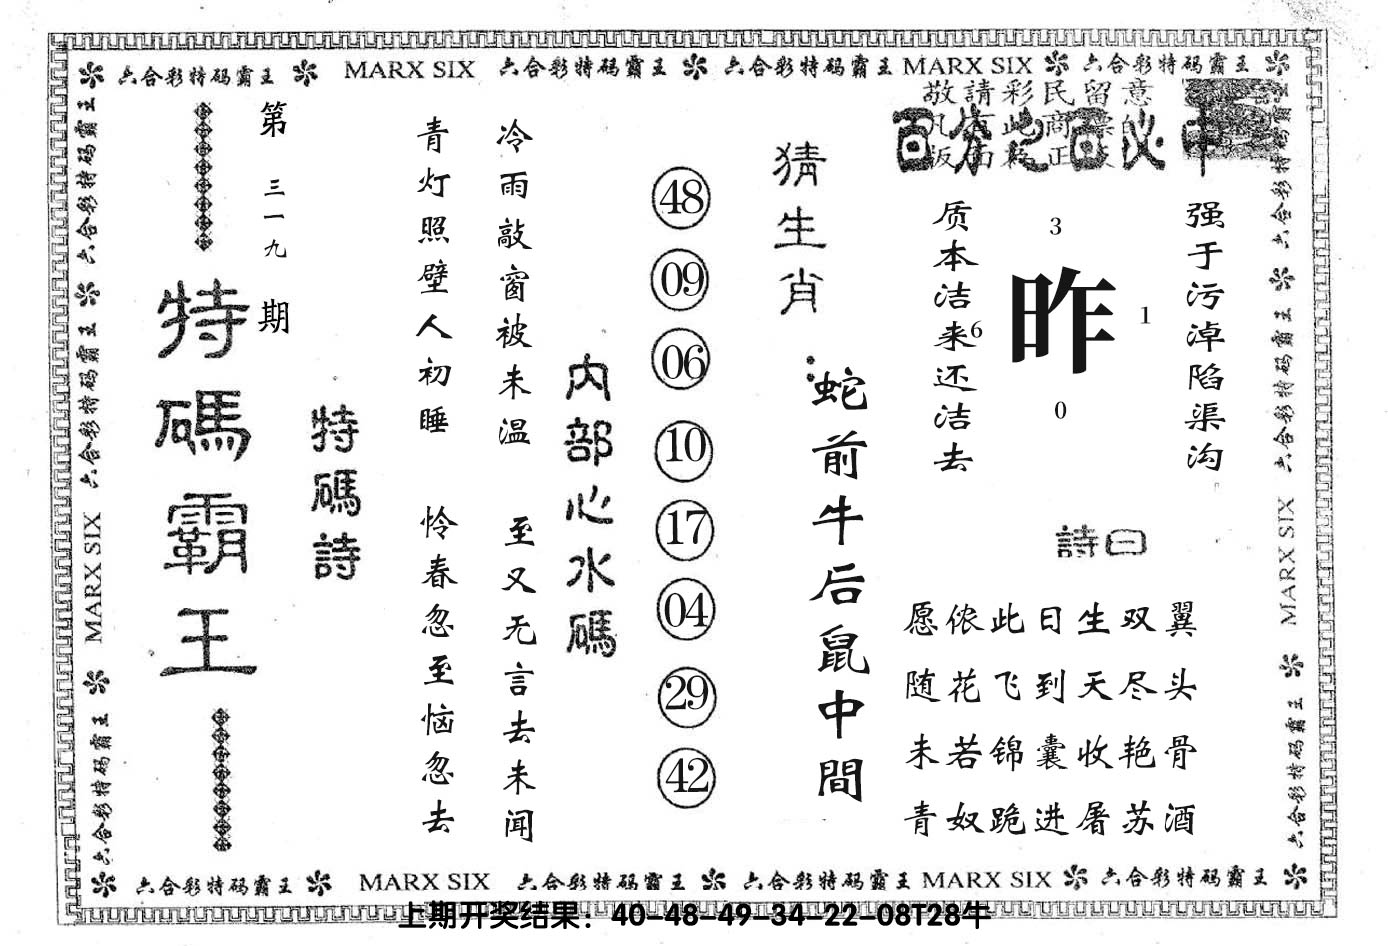 六合彩特码霸王 MARX SIX 六合彩特码霸王 六合彩特码霸王 MARX SIX 六合彩特码霸王
敬請彩民留意
百分之百必中
强于污淖陷渠沟
质本洁来还洁去
3
昨
6
1
0
詩曰
愿侬此日生双翼
随花飞到天尽头
未若锦囊收艳骨
青奴跪进屠苏酒
猜生肖:
蛇前牛后鼠中間
48
09
06
10
17
04
29
42
内部心水碼
冷雨敲窗被未温
至又无言去未闻
青灯照壁人初睡
怜春忽至恼忽去
特碼詩
第三一九期
特碼霸王
六合彩特码霸王 六合彩特码霸王 MARX SIX 六合彩特码霸王
六合彩特码霸王 六合彩特码霸王 MARX SIX 六合彩特码霸王
六合彩特码霸王 MARX SIX 六合彩特码霸王 六合彩特码霸王 MARX SIX 六合彩特码霸王
上期开奖结果：40-48-49-34-22-08T28牛